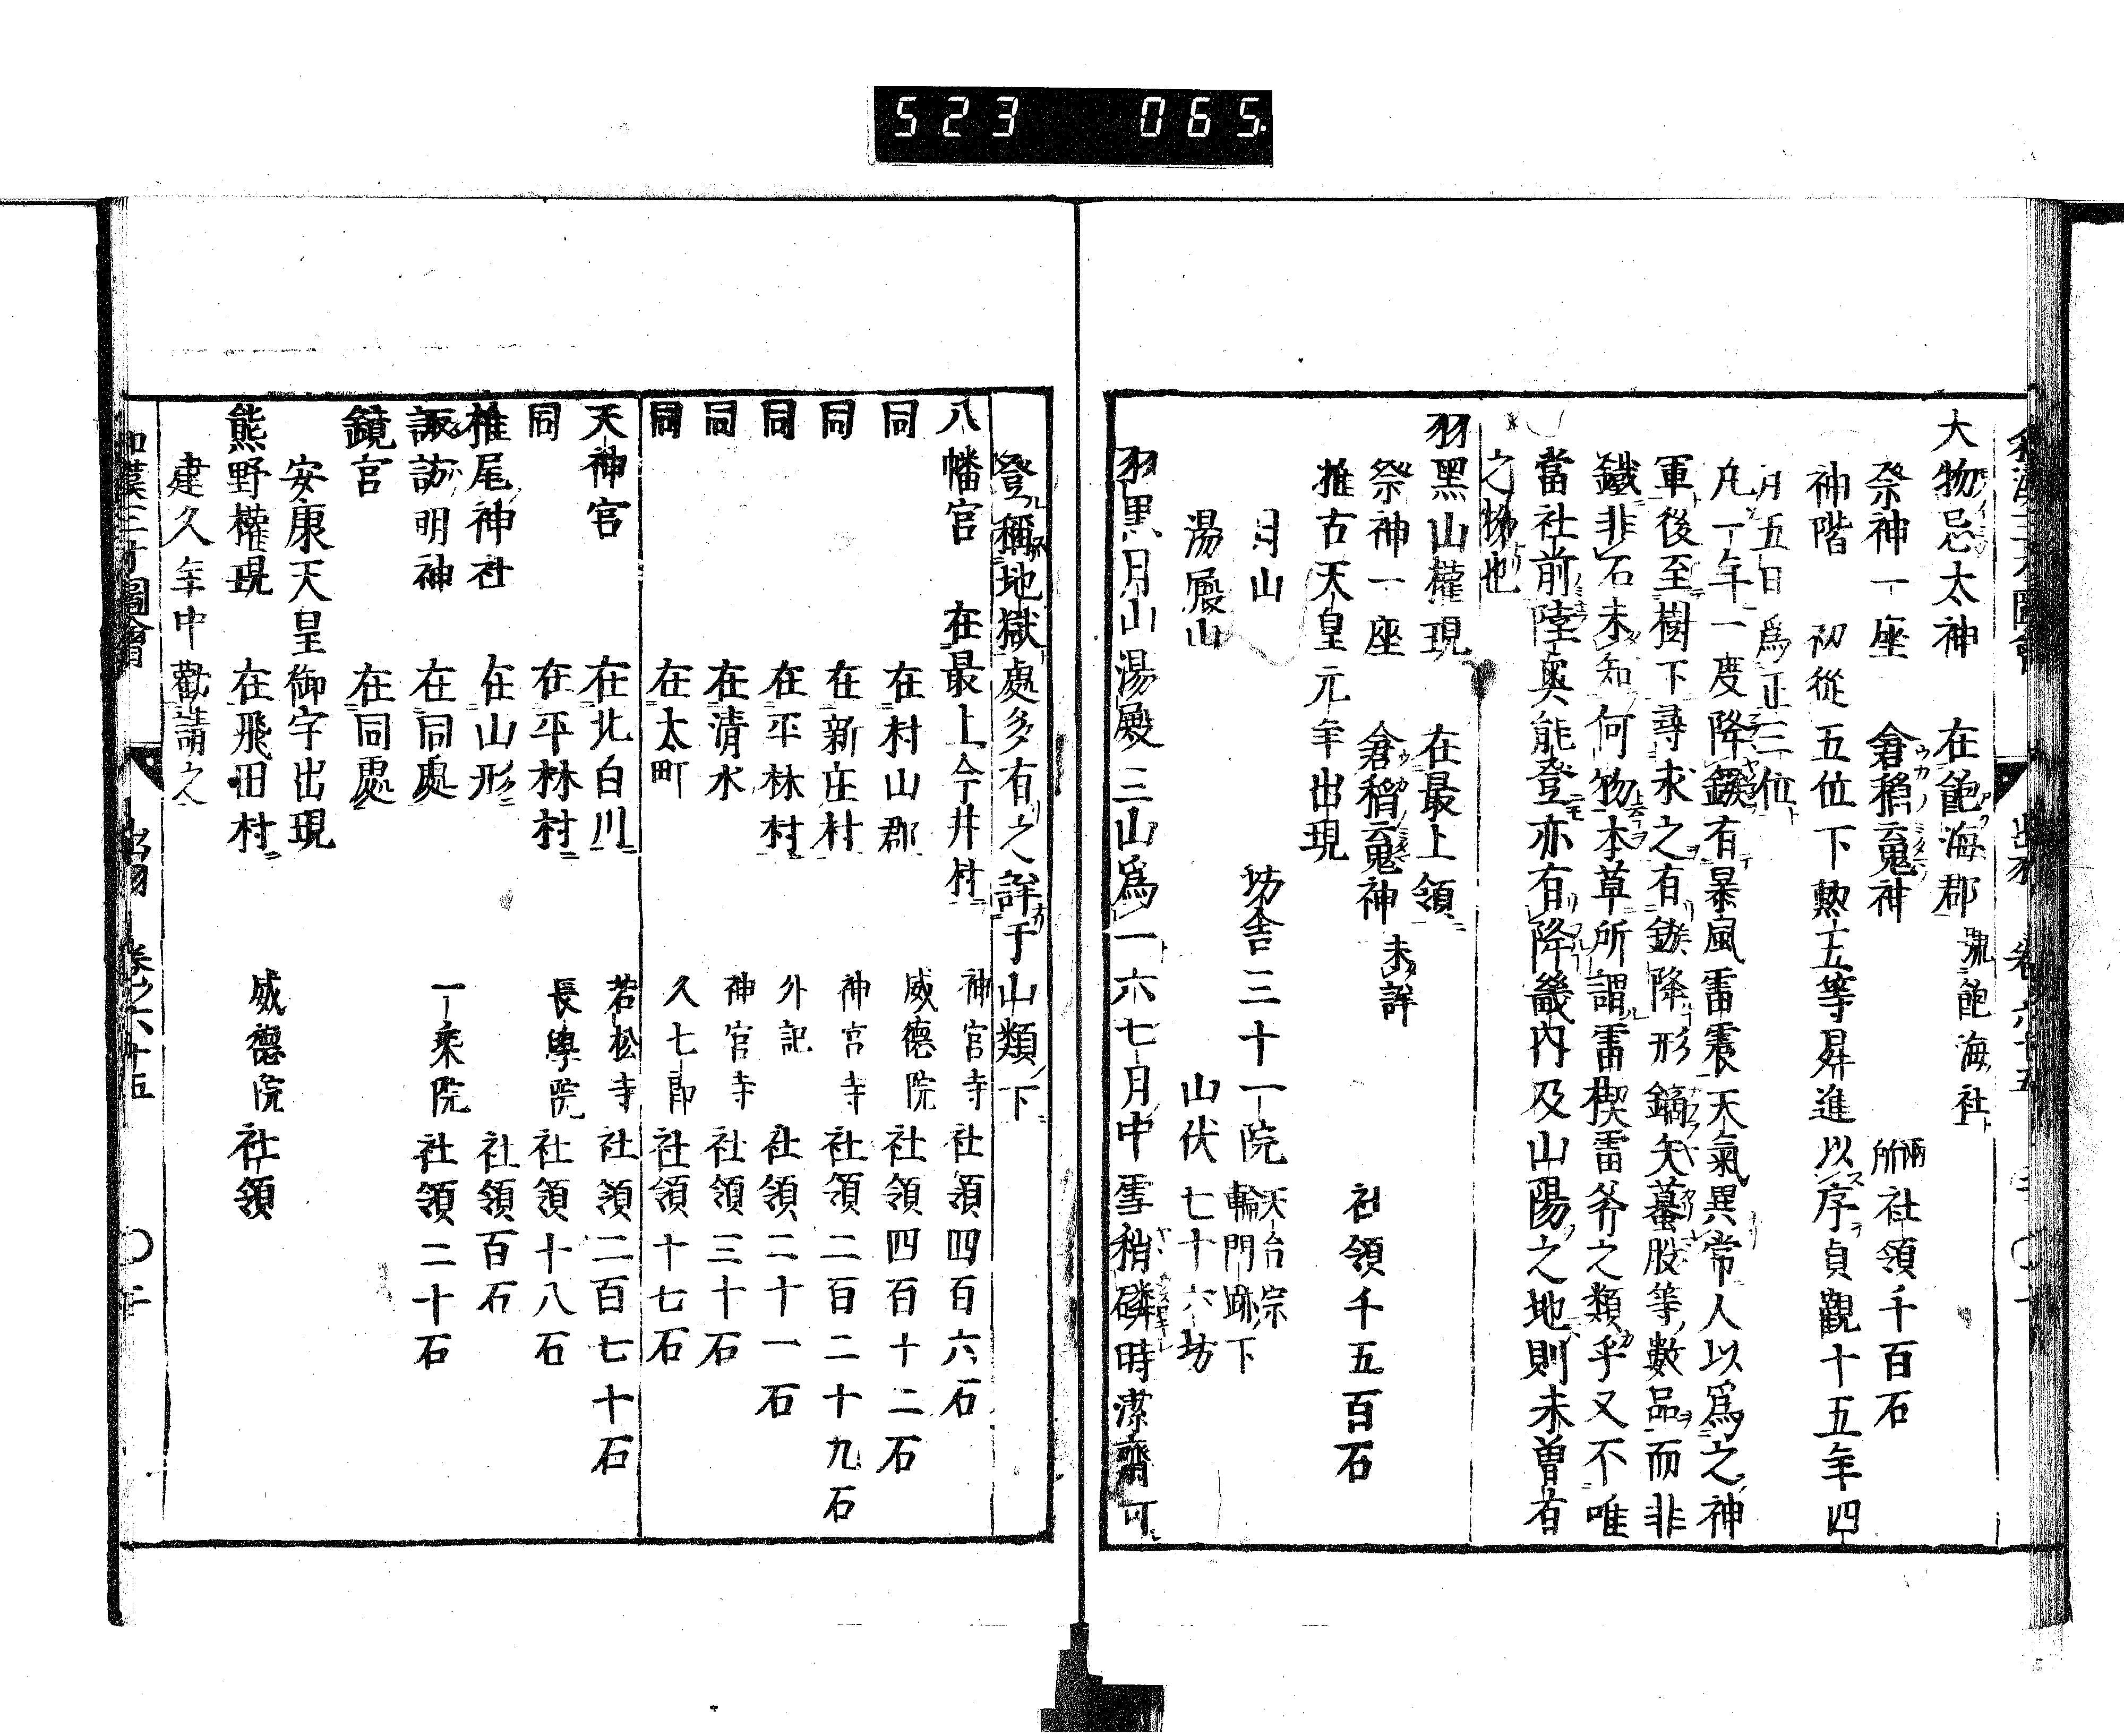 523 065.
大物忌太神　在飽海郡　號飽海社
祭神一座　倉稻䰠神　兩所社領千百石
神階　初從五位下勲五等昇進以序貞觀十五年四
月五日爲正三位
凡一年一度降鏃有暴風雷震天氣異常人以爲之神
軍後至樹下尋求之有鏃降形鏑矢蟇股等數品而非
鐵非石未知何物本草所謂雷楔雷斧之類乎又不唯
當社前陸奥能登亦有降畿内及山陽之地則未曽有
之物也
羽黑山權現　在最上領
祭神一座　倉稻䰠神　未詳　社領千五百石
推古天皇元年出現
月山　坊舎三十一院　天台宗　輪門跡下
湯殿山　山伏七十六坊
羽黒月山湯殿三山爲一六七月中雪稍磷時潔齋可
登稱地獄處多有之詳于山類下
八幡宮　在最上今井村　神宮寺　社領四百六石
同　在村山郡　威德院　社領四百十二石
同　在新庄村　神宮寺　社領二百二十九石
同　在平林村　外記　社領二十一石
同　在清水　神宮寺　社領三十石
同　在太町　久七郎　社領十七石
天神宮　在北白川　若松寺　社領二百七十石
同　在平林村　長學院　社領十八石
椎尾神社　在山形　社領百石
諏訪明神　在同處　一乘院　社領二十石
鏡宮　在同處
安康天皇御宇出現
熊野權現　在飛田村　威德院　社領
建久年中勸請之
和漢三才圖會　出羽　卷之六十五